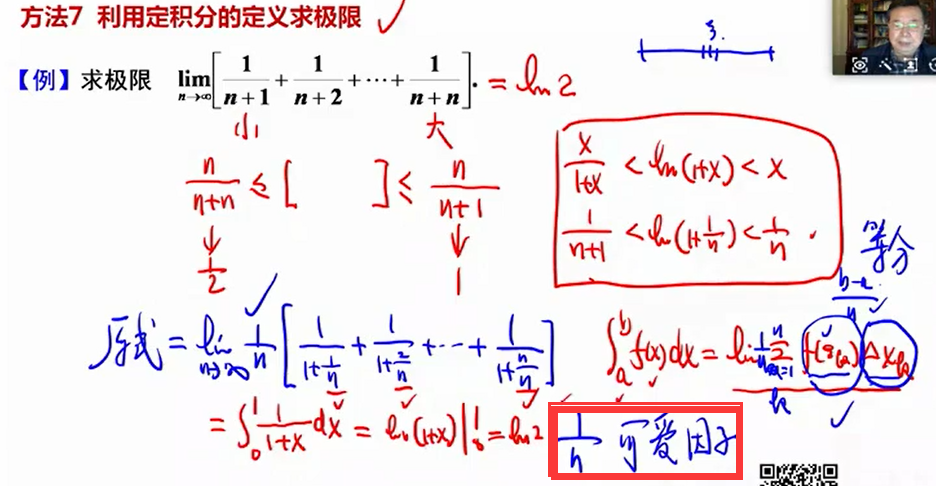 方法7 利用定积分的定义求极限
【例】求极限 lim n→∞ [ 1/(n+1) + 1/(n+2) + ⋯ + 1/(n+n) ]. = ln 2
小 大
n/(n+n) ≤ [ ] ≤ n/(n+1)
↓ ↓
1/2 1
x/(1+x) < ln(1+x) < x
1/(n+1) < ln(1+1/n) < 1/n .
等分
(b-a)/n
原式 = lim n→∞ 1/n [ 1/(1+1/n) + 1/(1+2/n) + ⋯ + 1/(1+n/n) ]
∫_a^b f(x)dx = lim Σ_{k=1}^n f(ξ_k) Δx_k
= ∫_0^1 1/(1+x) dx = ln(1+x)|_0^1 = ln 2
1/n 可爱因子